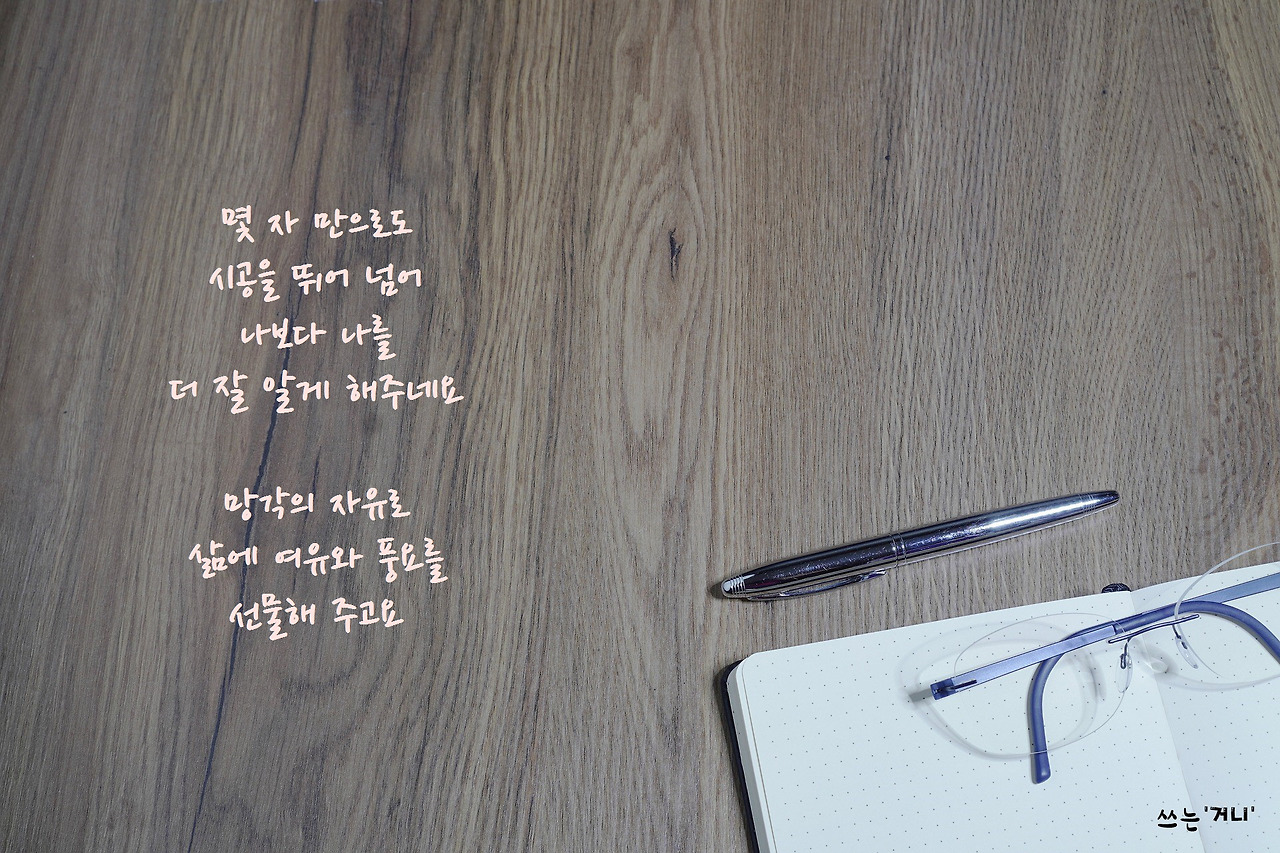 몇 자 만으로도
시공을 뛰어 넘어
나보다 나를
더 잘 알게 해주네요
망각의 자유로
삶에 여유와 풍요를
선물해 주고요
쓰는 '거니'